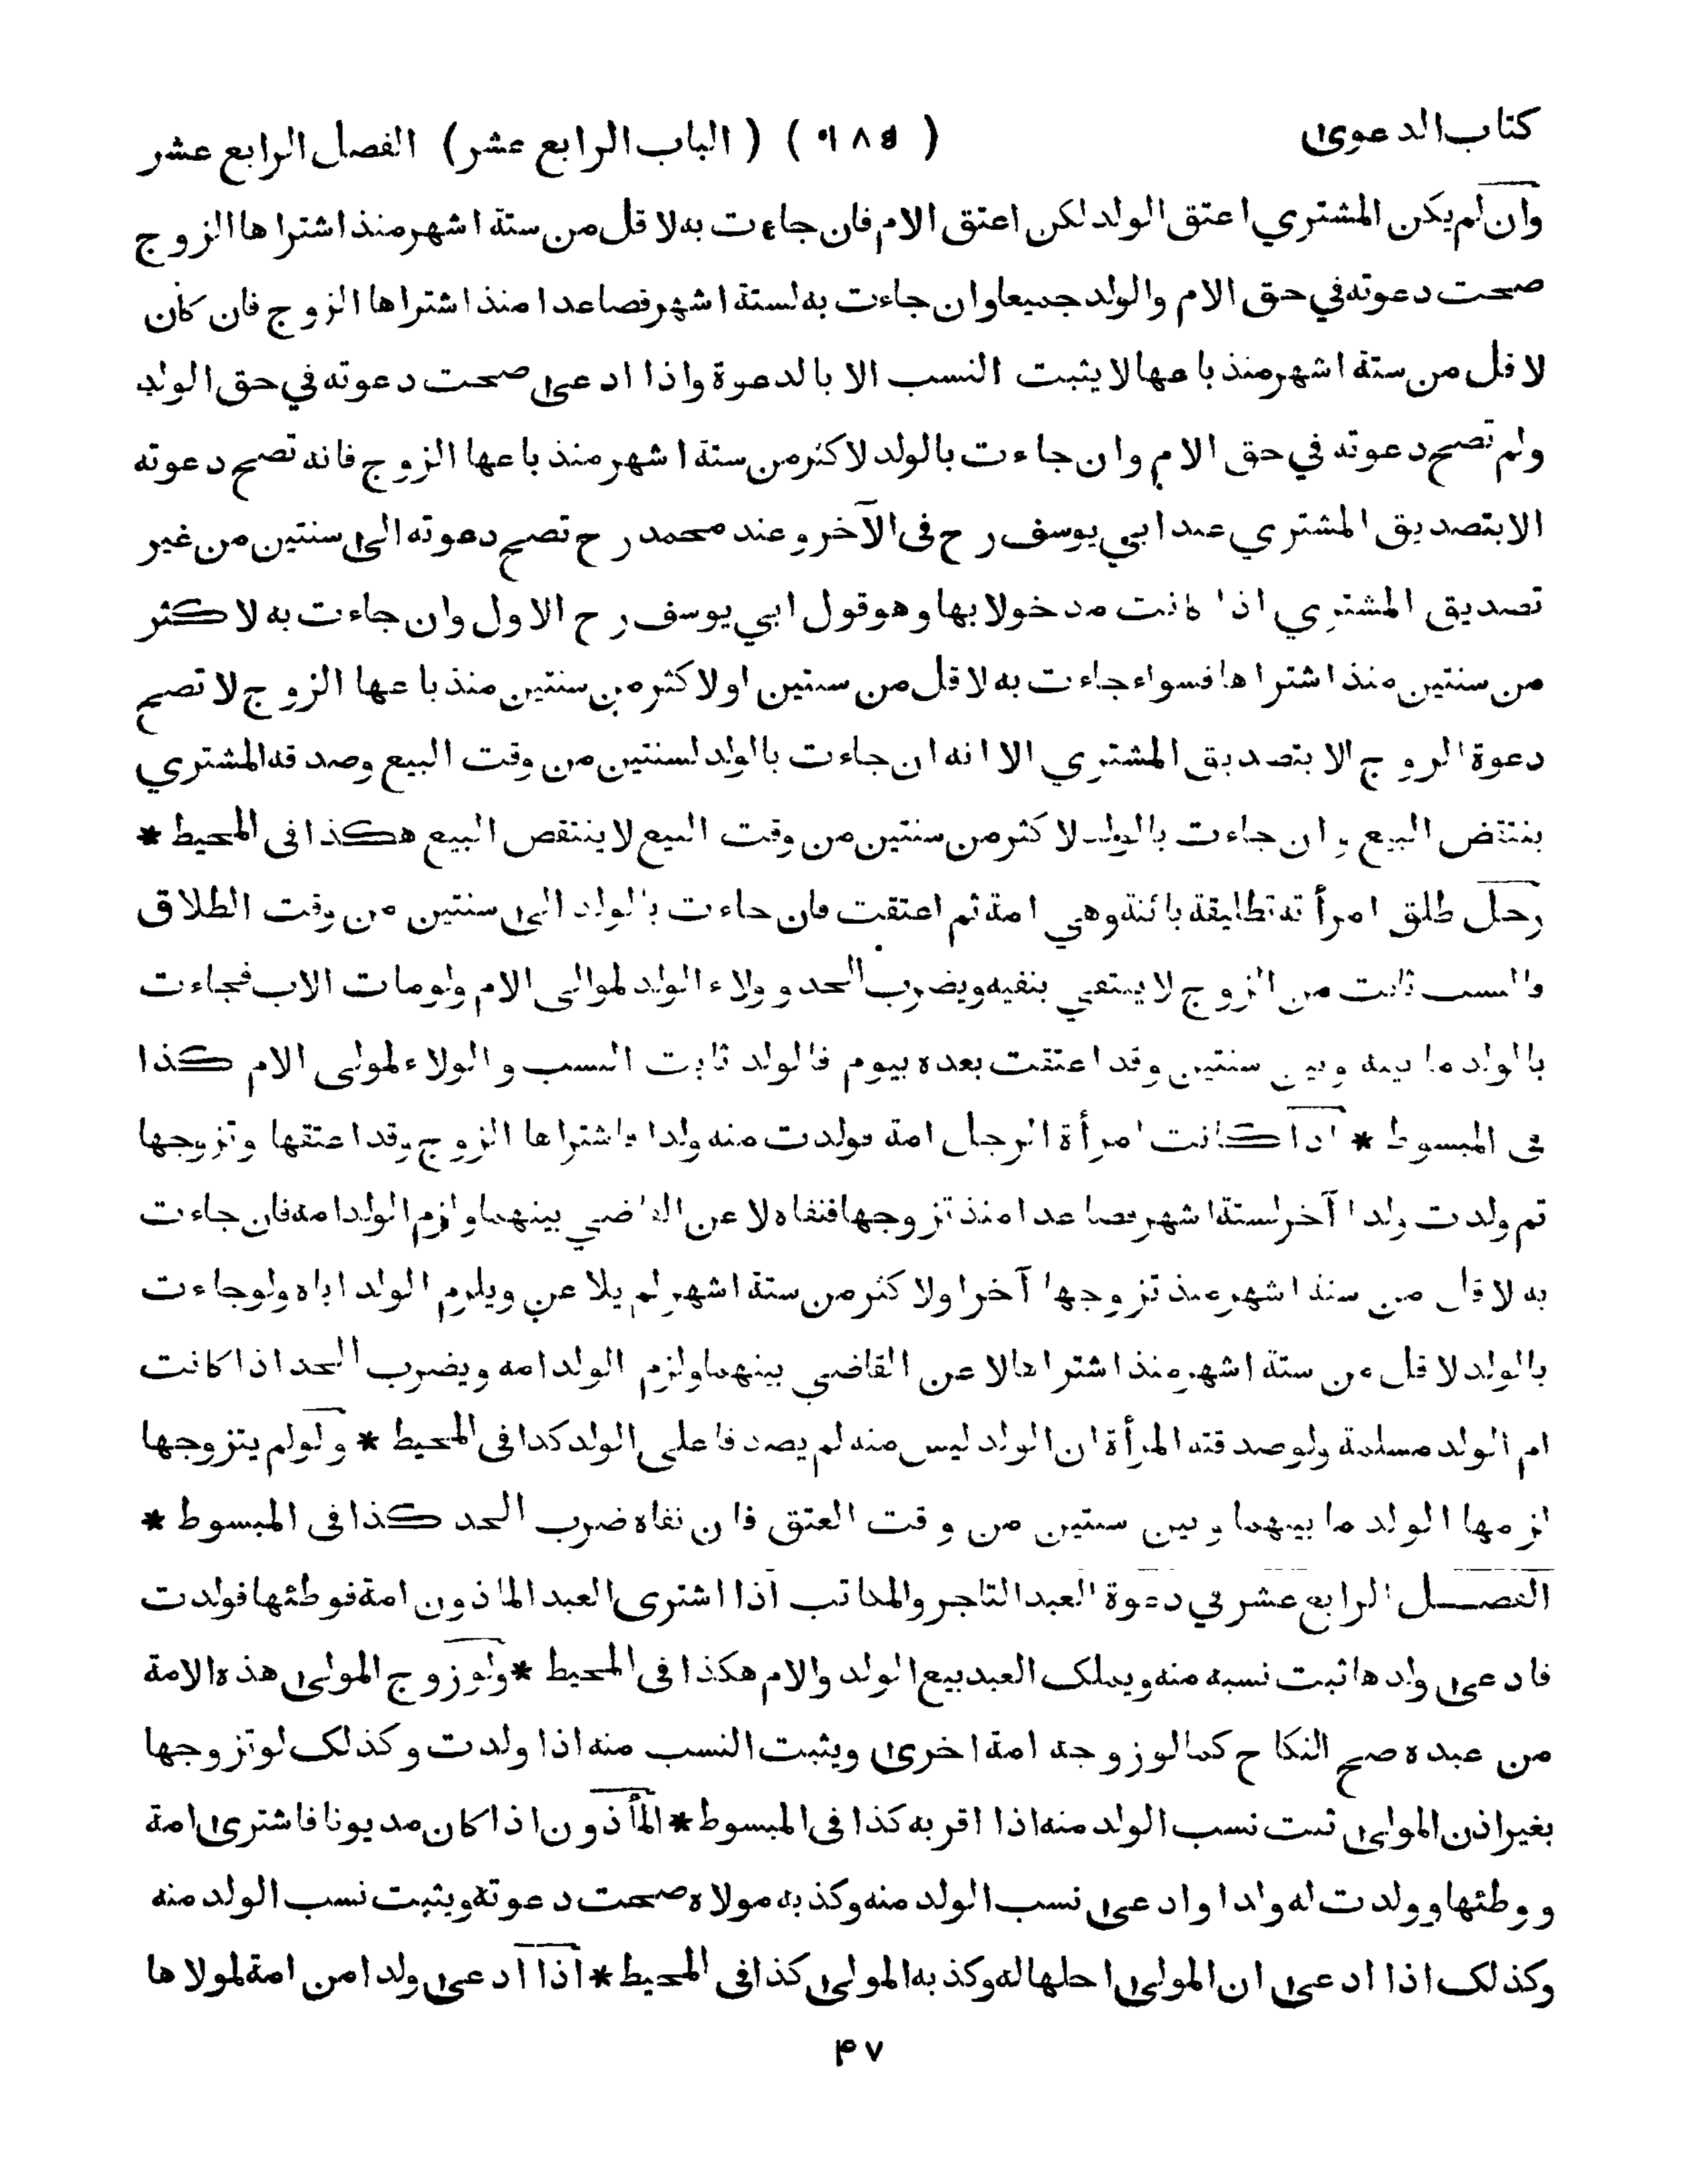 كتاب الدعوى ( ١٨٥ ) ( الباب الرابع عشر ) الفصل الرابع عشر
وان لم يكن المشتري اعتق الولد لكن اعتق الام فان جاءت به لا قل من ستة اشهر منذ اشتراها الزوج
صحت دعوته في حق الام والولد جميعا وان جاءت به لستة اشهر فصاعدا منذ اشتراها الزوج فان كان
لا قل من ستة اشهر منذ باعها لا يثبت النسب الا بالدعوة واذا ادعى صحت دعوته في حق الولد
ولم تصح دعوته في حق الام وان جاءت بالولد لاكثر من ستة اشهر منذ باعها الزوج فانه تصح دعوته
الا بتصديق المشتري عند ابي يوسف رح فى الآخر وعند محمد رح تصح دعوته الى سنتين من غير
تصديق المشتري اذا كانت مدخولا بها وهو قول ابي يوسف رح الاول وان جاءت به لاكثر
من سنتين منذ اشتراها فسواء جاءت به لا قل من سنتين او لاكثر من سنتين منذ باعها الزوج لا تصح
دعوة الزوج الا بتصديق المشتري الا انه ان جاءت بالولد لسنتين من وقت البيع وصدقه المشتري
ينتقض البيع وان جاءت بالولد لاكثر من سنتين من وقت البيع لا ينتقض البيع هكذا فى المحيط *
رجل طلق امرأته تطليقة بائنة وهي امة ثم اعتقت فان جاءت بالولد الى سنتين من وقت الطلاق
والنسب ثابت من الزوج لا ينتفي بنفيه ويضرب الحد وولاء الولد لموالى الام ولو مات الاب فجاءت
بالولد ما بينه وبين سنتين وقد اعتقت بعده بيوم فالولد ثابت النسب والولاء لمولى الام كذا
فى المبسوط * اذا كانت امرأة الرجل امة فولدت منه ولدا فاشتراها الزوج وقد اعتقها وتزوجها
ثم ولدت ولدا آخر لستة اشهر فصاعدا منذ تزوجها فنفاه لاعن القاضي بينهما ولزم الولد امه فان جاءت
به لا قل من ستة اشهر منذ تزوجها آخرا ولاكثر من ستة اشهر لم يلاعن ويلزم الولد اباه ولو جاءت
بالولد لا قل من ستة اشهر منذ اشتراها لاعن القاضي بينهما ولزم الولد امه ويضرب الحد اذا كانت
ام الولد مسلمة ولو صدقته المرأة ان الولد ليس منه لم يصدقا على الولد كذا فى المحيط * ولو لم يتزوجها
لزمها الولد ما بينهما وبين سنتين من وقت العتق فان نفاه ضرب الحد كذا فى المبسوط *
الفصل الرابع عشر في دعوة العبد التاجر والمكاتب اذا اشترى العبد الماذون امة فوطئها فولدت
فادعى ولدها ثبت نسبه منه ويملك العبد بيع الولد والام هكذا فى المحيط * ولو زوج المولى هذه الامة
من عبده صح النكاح كما لو زوجه امة اخرى ويثبت النسب منه اذا ولدت وكذلك لو تزوجها
بغير اذن المولى ثبت نسب الولد منه اذا اقر به كذا فى المبسوط * المأذون اذا كان مديونا فاشترى امة
ووطئها وولدت له ولدا وادعى نسب الولد منه وكذبه مولاه صحت دعوته ويثبت نسب الولد منه
وكذلك اذا ادعى ان المولى احلها له وكذبه المولى كذا فى المحيط * اذا ادعى ولدا من امة لمولاها
۴۷